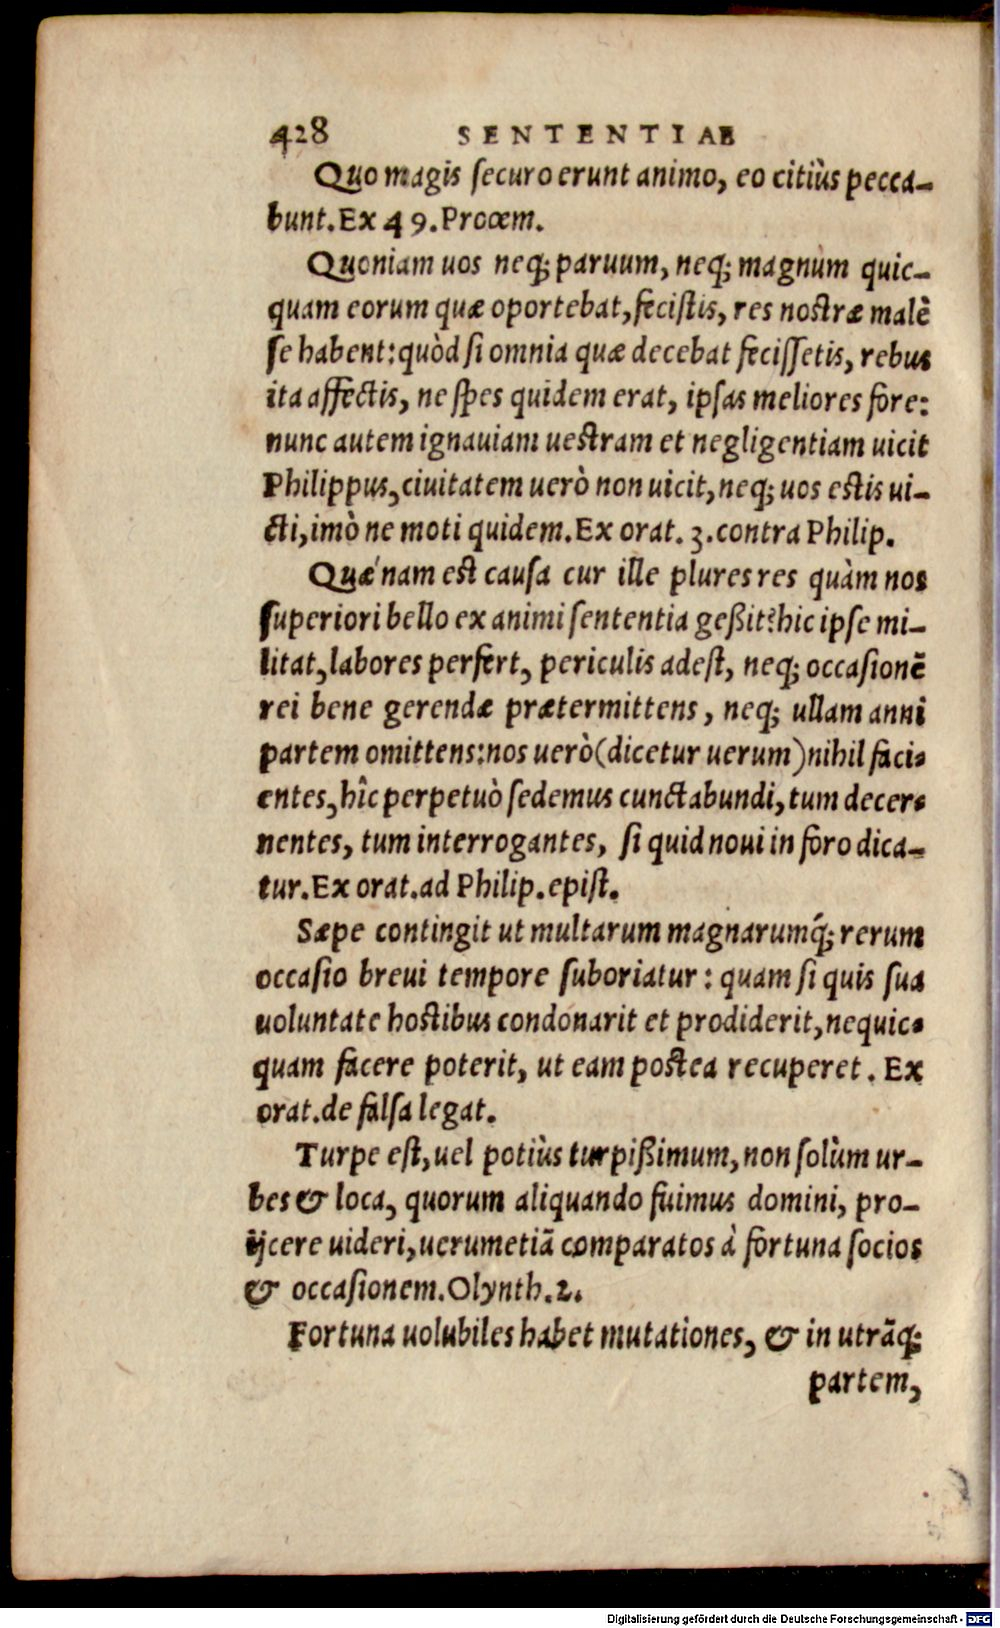 428 SENTENTIAE
Quo magis securo erunt animo, eo citiùs pecca-
bunt. Ex 49. Procœm.
Quoniam uos neq; paruum, neq; magnum quic-
quam eorum quæ oportebat, fecistis, res nostræ malè
se habent: quòd si omnia quæ decebat fecissetis, rebus
ita affectis, ne spes quidem erat, ipsas meliores fore:
nunc autem ignauiam uestram et negligentiam uicit
Philippus, ciuitatem uerò non uicit, neq; uos estis ui-
cti, imò ne moti quidem. Ex orat. 3. contra Philip.
Quæ´nam est causa cur ille plures res quàm nos
superiori bello ex animi sententia geßit? hic ipse mi-
litat, labores perfert, periculis adest, neq; occasionē
rei bene gerendæ prætermittens, neq; ullam anni
partem omittens: nos uerò (dicetur uerum) nihil faci-
entes, hîc perpetuò sedemus cunctabundi, tum decer-
nentes, tum interrogantes, si quid noui in foro dica-
tur. Ex orat. ad Philip. epist.
Sæpe contingit ut multarum magnarumq́; rerum
occasio breui tempore suboriatur: quam si quis sua
uoluntate hostibus condonarit et prodiderit, nequic-
quam facere poterit, ut eam postea recuperet. Ex
orat. de falsa legat.
Turpe est, uel potiùs turpißimum, non solùm ur-
bes & loca, quorum aliquando fuimus domini, pro-
ijcere uideri, uerumetiā comparatos à fortuna socios
& occasionem. Olynth. 2.
Fortuna uolubiles habet mutationes, & in utrāq;
partem,
Digitalisierung gefördert durch die Deutsche Forschungsgemeinschaft - DFG